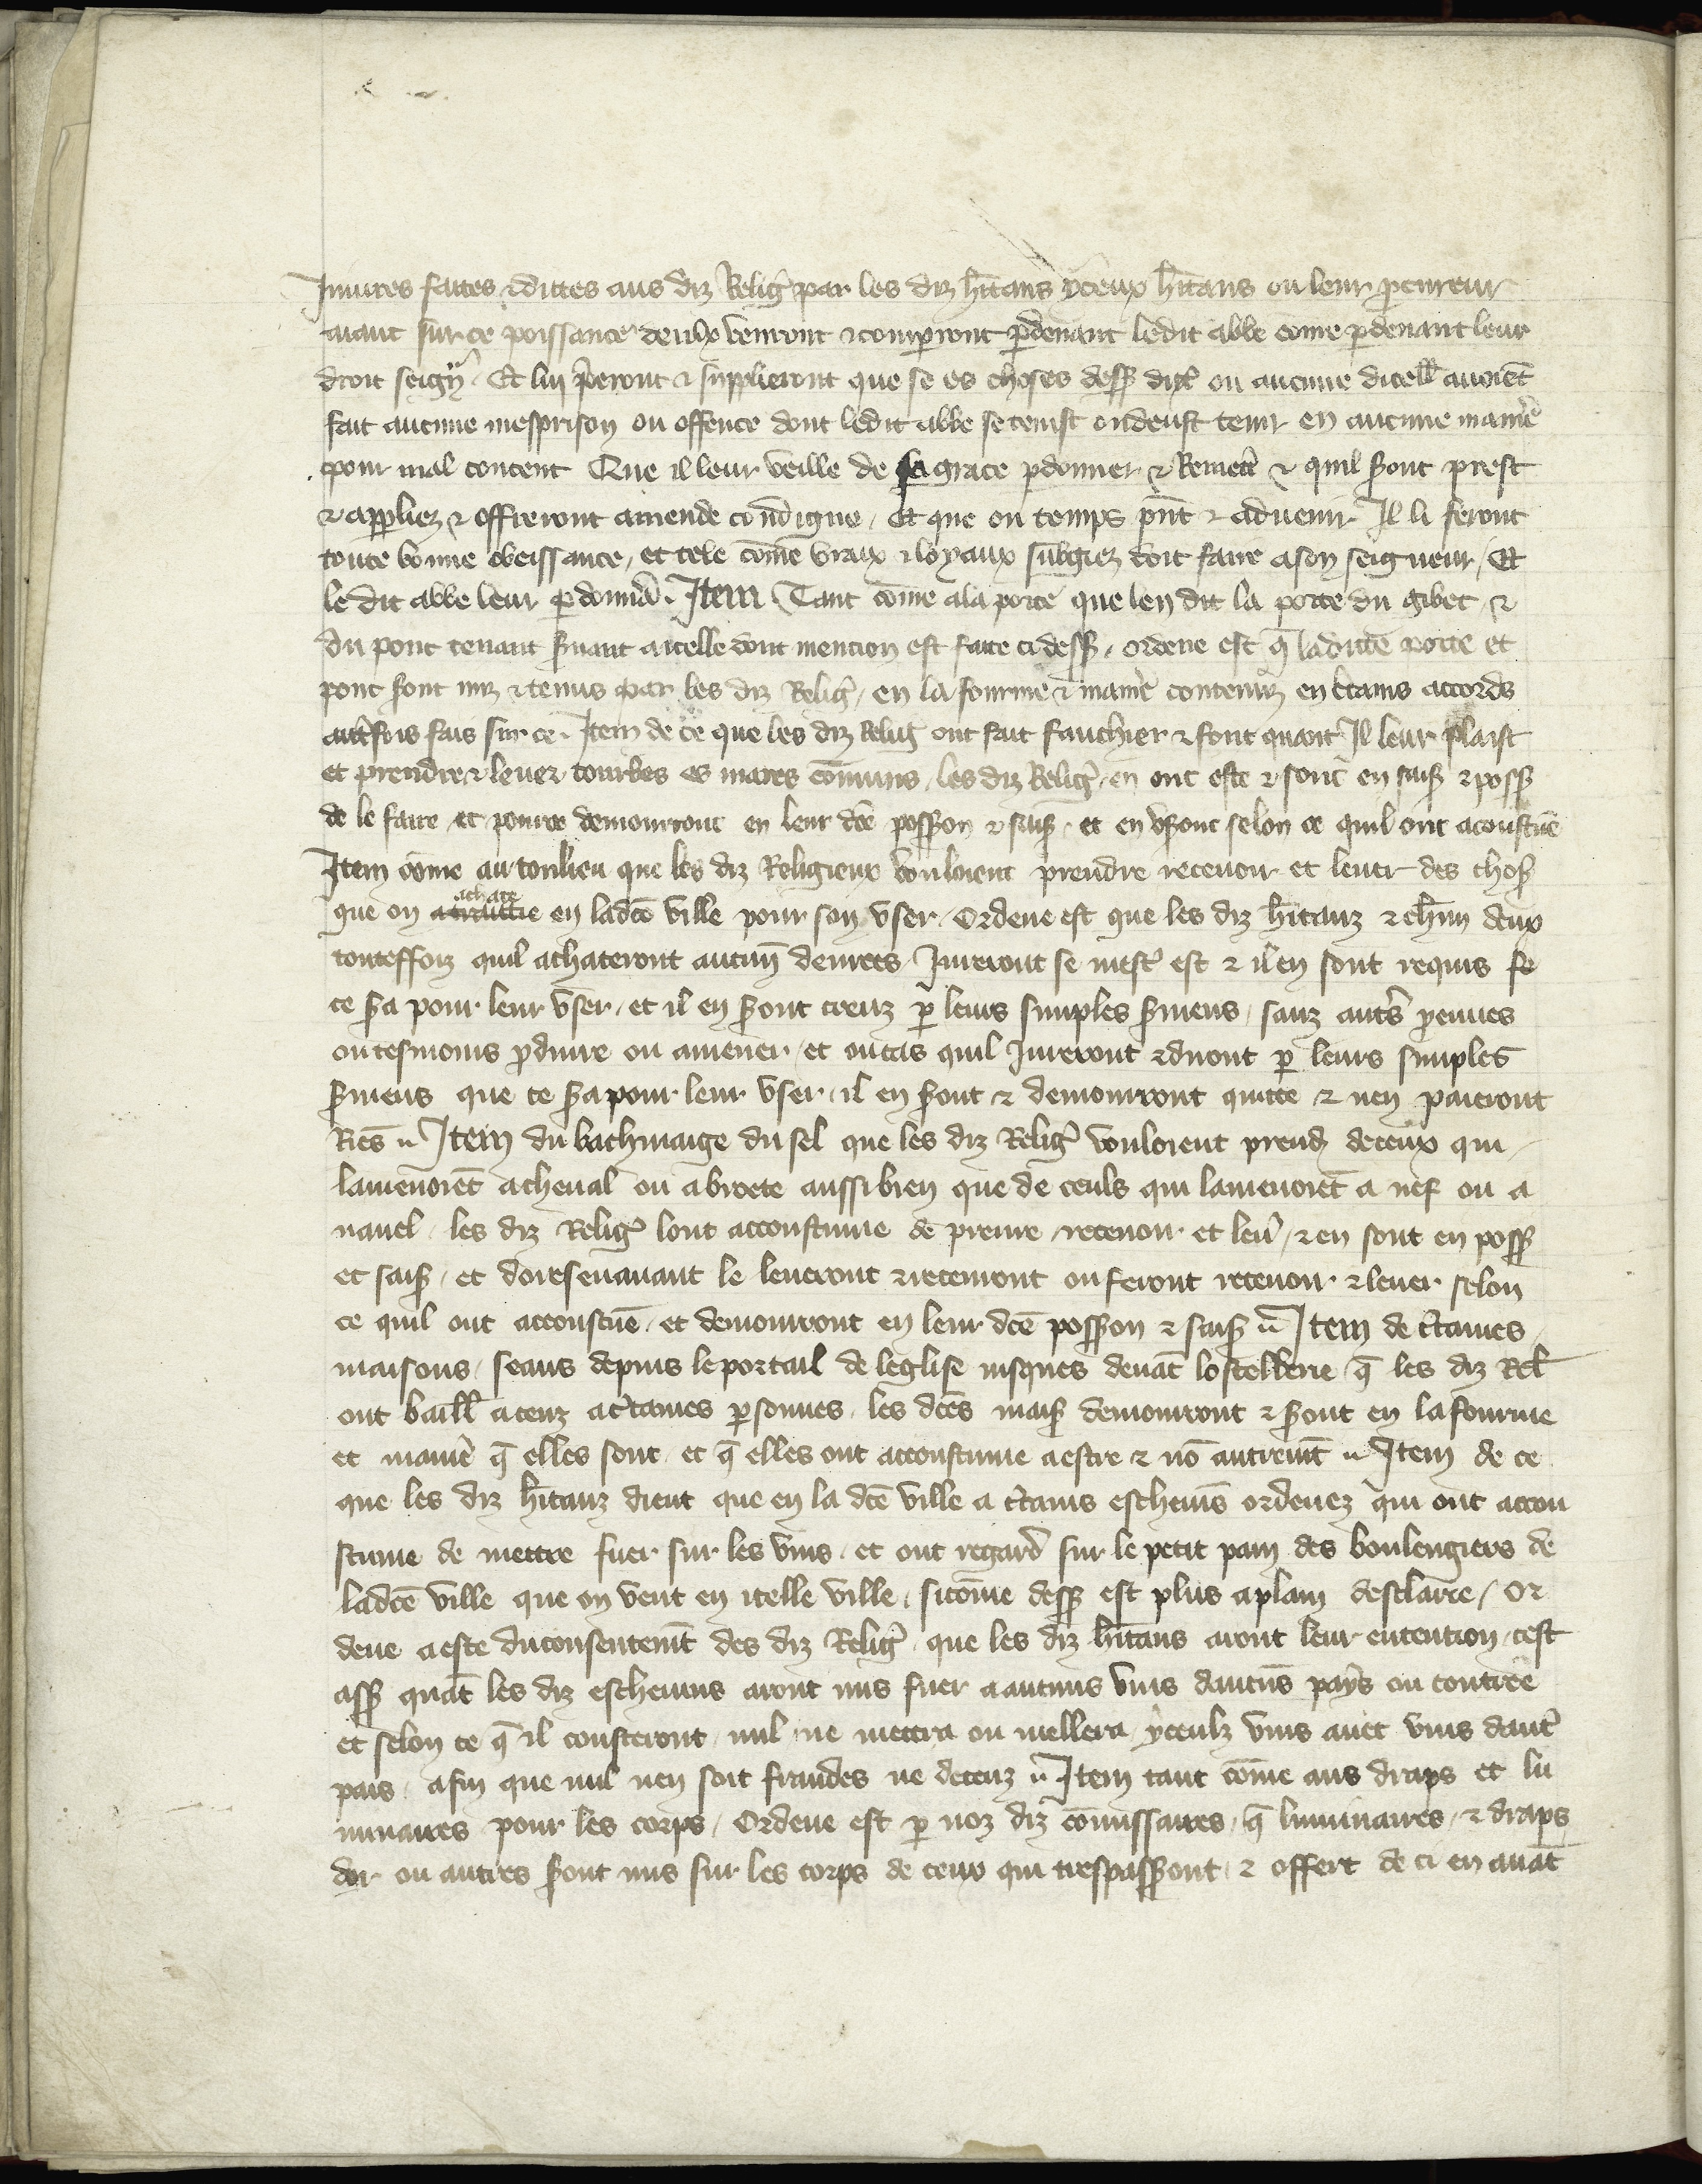 Iniures faites ⁊ dittes aus diz Relig̃ par les diz hītans yceux hītans ou leur ꝓcureur
aiant sur ce poissance deulx venront ⁊ comꝑront ꝑdeuant ledit abbe come ꝑdeuant leur
droit seign̄r . Et lui pͥeront ⁊ supplieront que se es choses dess̄ dit̄ ou aucune dicell̄ auoiēt
fait aucune mesprison ou offence dont ledit abbe se tenist ou deust tenir en aucune manie᷑
pour mal content Que il leur veille de sa grace ꝑdonner ⁊ Remett᷑ ⁊ quil s̄ont prest
⁊ appliez ⁊ offreront amende condigne , Et que ou temps pn̄t ⁊ aduenir Il li feront
toute bonne obeissance , et tele cōme vraux ⁊ loyaux subgiez doit faire a son seigneur , Et
le dit abbe leur ꝑdonnā . Item Tant cōme a la porte que len dit la porte du gibet , ⁊
du pont tenant s̄uant a icelle dont mencion est faite ci dess̄ , ordene est q̄ la ditte porte et
pont sont mis ⁊ tenus par les diz Relig̃ , en la fourme ⁊ manie᷑ contenuz en c̄tains accords
aut᷑fois fais sur ce . Item de ce que les diz Relig̃ ont fait fauchier ⁊ font quant Il leur plaist
et prendre ⁊ leuer tourbes es mares cōmuns , les diz Relig̃ , en ont este ⁊ sont en sais̄ ⁊ poss̄
de le faire et pource demourront en leur dc̄e poss̄ion ⁊ sais̄ , et en vs̄ont selon ce quil ont acoustūe
Item cōme au tonlieu que les diz Religieux vouloient prendre receuoir et leuer des chos̄
que on achate en ladc̄e ville pour son vser . Ordene est que les diz hītanz ⁊ chūn deux
touteffoiz quil achateront aucun̄ denrees , Jureront se mest᷑ est ⁊ il en sont requis se
ce s̄a pour leur vser , et il en s̄ont creuz ꝑ leurs simples s̄mens , sanz aut᷑s preuues
ou tesmoins ꝓduire ou amener , et ou cas quil Jureront ⁊ diront ꝑ leurs simples
s̄mens que ce s̄a pour leur vser , il en s̄ont ⁊ demourront quitte ⁊ nen paieront
Riēs .. Item du bachinaige du sel que les diz Relig̃ vouloient prend᷑ de ceux qui
lamenoiēt a cheual ou a broete aussi bien que de ceuls qui lamenoiēt a nef ou a
nauel , les diz Relig̃ lont accoustume de prenre , receuoir et leu᷑ , ⁊ en sont en poss̄
et sais̄ , et doresenauant le leueront ⁊ receuront ou feront receuoir ⁊ leuer selon
ce quil ont accoustūe , et demourront en leur dc̄e poss̄ion ⁊ sais̄ .. Item de c̄taines
maisons , seans depuis le portail de leglise iusques deuāt lostellerie q̄ les diz Rel̄
ont baill̄ a cenz a c̄taines ꝑsonnes , les dc̄es mais̄ demourront ⁊ s̄ont en la fourme
et manie᷑ q̄ elles sont , et q̄ elles ont accoustume a estre ⁊ nō autremt̄ .. Item de ce
que les diz hītanz dient que en la dc̄e ville a c̄tains escheuīs ordenez qui ont accou
stume de mettre fuer sur les vins , et ont regard̄ sur le petit pain des boulengiers de
ladc̄e ville que on vent en icelle ville , sicōme dess̄ est plus a plain desclaire , Or
dene a este du consentemt̄ des diz Relig̃ , que les diz hītans aront leur entention , cest
ass̄ quāt les diz escheuins aront mis fuer a aucuns vins daucūs pays ou contree
et selon ce q̄ il cousteront , nul ne mettra ou mellera yceulz vins auec vins daut᷑
pais , afin que nul nen soit fraudes ne deceuz .. Item tant cōme aus draps et lu
minaires pour les corps , Ordene est ꝑ noz diz cōmissaires , q̄ luminaires , ⁊ draps
dor ou autres s̄ont mis sur les corps de ceux qui trespass̄ont , ⁊ offert de ci en auāt